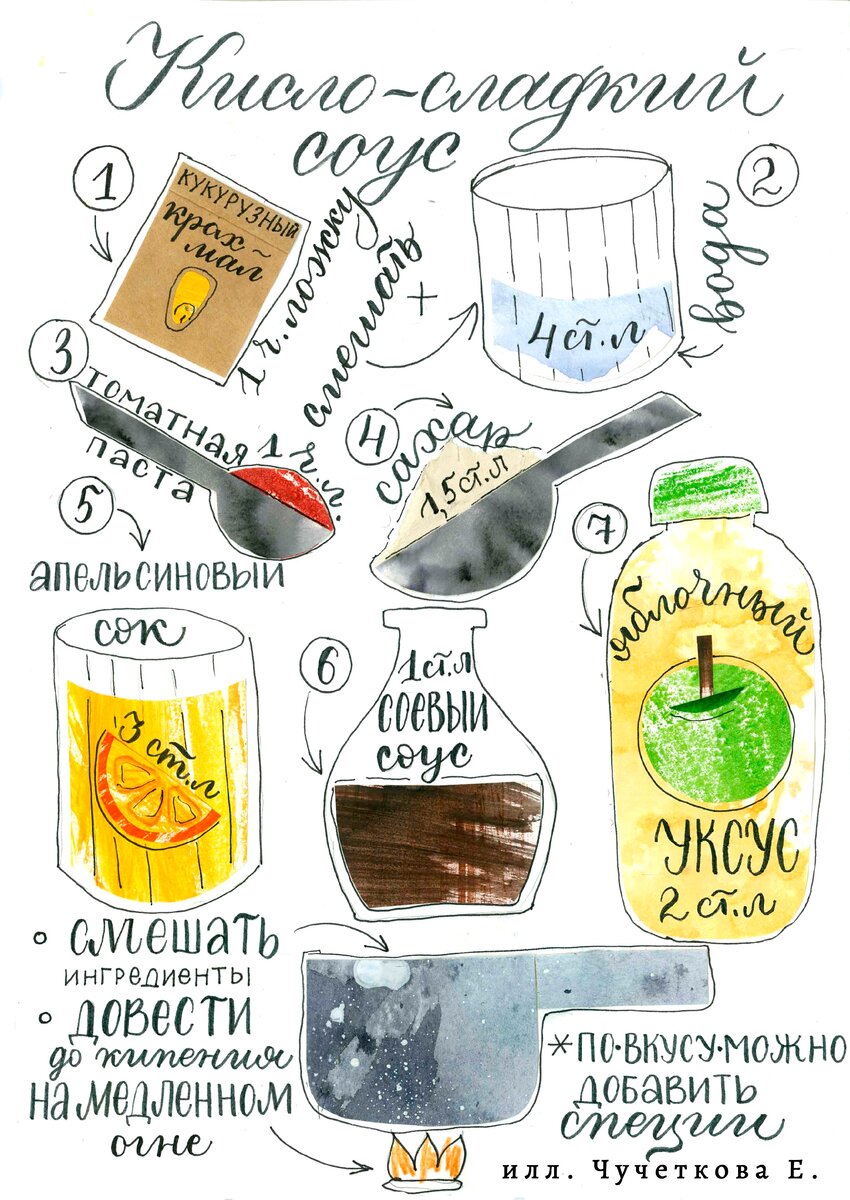 Кисло-сладкий
соус
1
КУКУРУЗНЫЙ
крах-
мал
1 ч. ложку
смешать
+
2
вода
4 ст. л
3
томатная
паста
1 ч. л.
4
сахар
1,5 ст. л
5
апельсиновый
сок
3 ст. л
6
1 ст. л
СОЕВЫЙ
соус
7
яблочный
УКСУС
2 ст. л
• СМЕШАТЬ
ИНГРЕДИЕНТЫ
• ДОВЕСТИ
до кипения
НА МЕДЛЕННОМ
огне
*ПО·ВКУСУ·МОЖНО
ДОБАВИТЬ
специи
илл. Чучеткова Е.